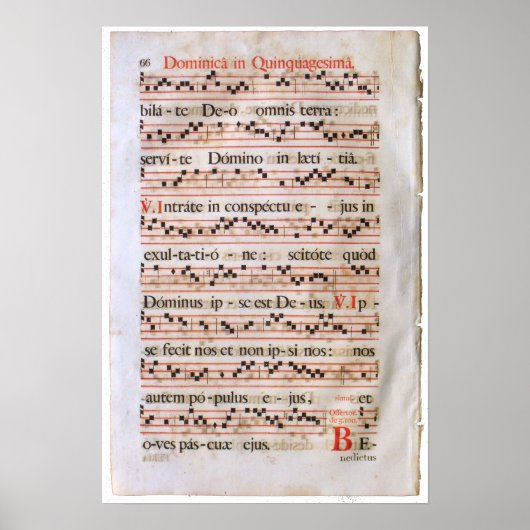 66 Dominicâ in Quinquagesimâ.
bilá-te De-o omnis terra:
serví-te Dómino in lætí-tiâ.
V. Intráte in conspéctu e--jus in
exul-ta-ti-ó-ne: scitóte quòd
Dóminus ip-se est De-us. V. Ip-
se fecit nos et non ip-si nos: nos
autem pó-pulus e-jus, et
o-ves pás-cuæ ejus.
Offertor.
BE-
nedictus